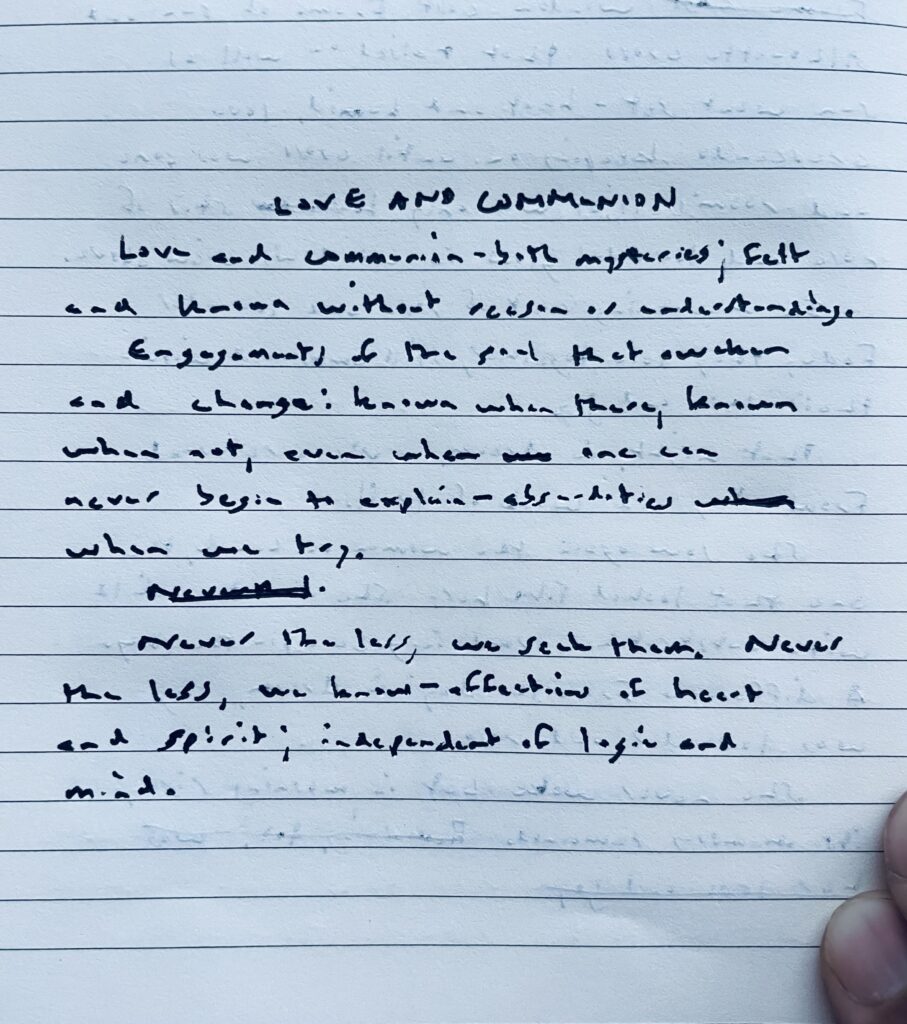 LOVE AND COMMUNION
Love and communion - both mysteries; felt
and known without reason or understanding.
Engagements of the soul that awaken
and change: known when there, known
when not, even when one can
never begin to explain - absurdities
when we try.
Never the less, we seek them. Never
the less, we know - affections of heart
and spirit; independent of logic and
mind.